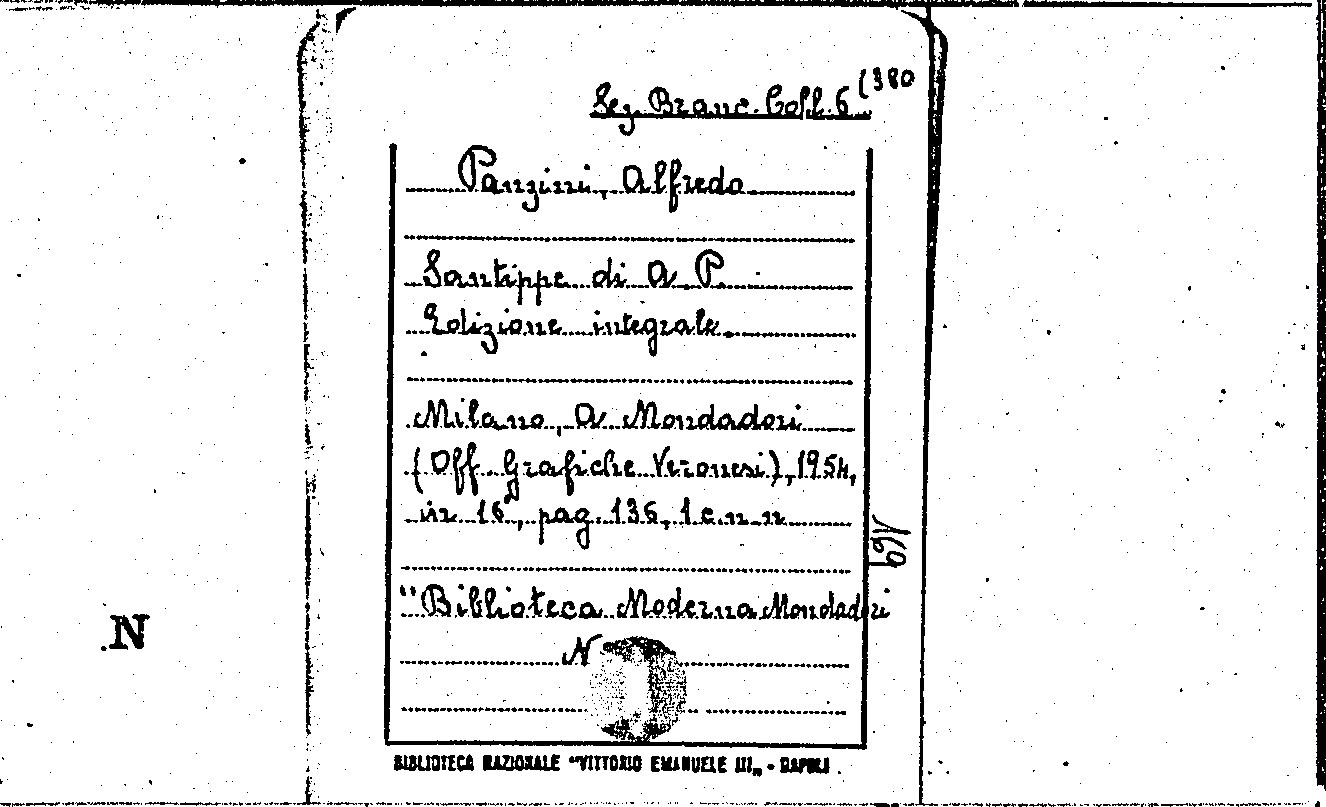 Sez. Branc. Coll. 6 (380
Panzini, Alfredo
Santippe di A. P.
Edizione integrale.
Milano, A. Mondadori
(Off. Grafiche Veronesi), 1954,
in 16°, pag. 136, 1 c. n. n.
"Biblioteca Moderna Mondadori
N
169
N
BIBLIOTECA NAZIONALE "VITTORIO EMANUELE III„ - NAPOLI